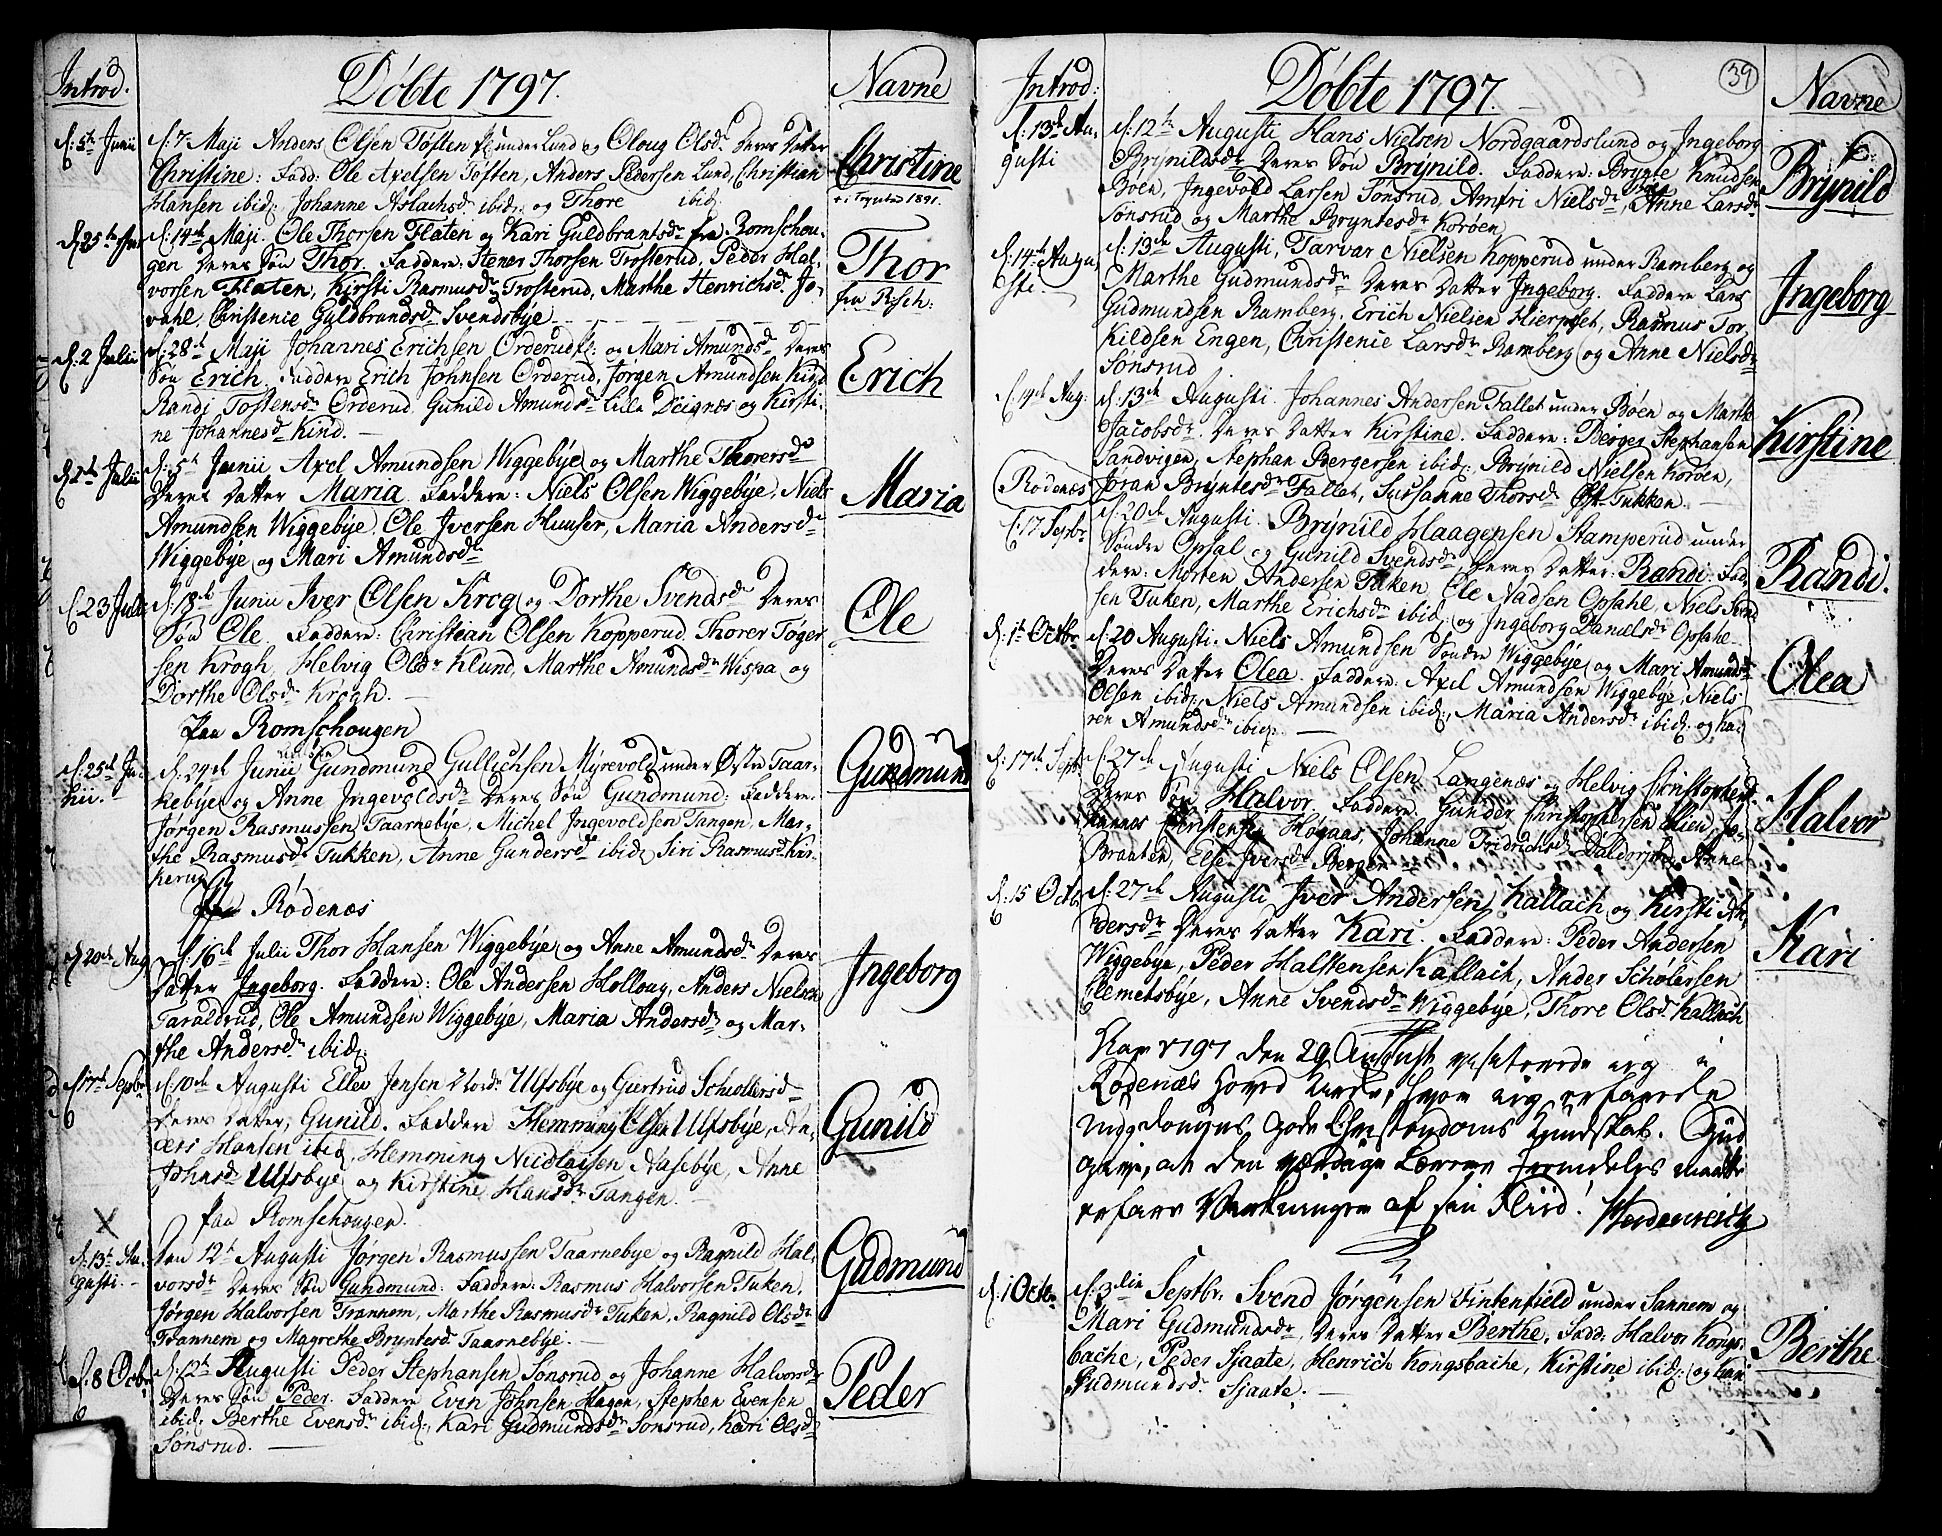 Introd.
Døbte 1797.
Navne
d: 5te Junii
d: 7 Maji Anders Olsen Tøsten under Lund og Oloug Olsdr Deres Datter
Christine: Fadd: Ole Axelsen Tøsten, Anders Pedersen Lund, Christian
Hansen ibid: Johanne Aslachsdr ibid: og Thore ibid:
Christine
d 25te Jun
d: 14de Maji. Ole Thorsen Flaten og Kari Guldbrantsdr fra Romschou-
gen Deres Søn Thor. Faddere: Stener Thorsen Trosterud, Peder Hal-
vorsen Flaten, Kirsti Rasmusdr Trosterud, Marthe Henrichsdr Jo-
vahl, Christenie Guldbrandsdr Svendsbye
Thor
fra R:sch:
d: 2 Julii
d: 28de Maji Johannes Erichsen Orderud og Mari Amundsdr Deres
Søn Erich. Faddere Erich Johnsen Orderud, Jørgen Amundsen Kind
Randi Tostensdr Orderud, Gunild Amundsdr Lille Deignæs og Kirsti-
ne Johannesdr Kind.
Erich
d 2de Julii
d: 5te Junii Axel Amundsen Wiggebye og Marthe Thorersdr
Deres Datter Maria. Faddere: Niels Olsen Wiggebye, Niels
Amundsen Wiggebye, Ole Iversen Huuser, Maria Andersdr
Wiggebye og Mari Amundsdr
Maria
d 23 Julii
d: 18de Junii Iver Olsen Krog og Dorthe Svendsdr Deres
Søn Ole. Faddere: Christian Olsen Kopperud, Thorer Tøger-
sen Krogh, Helvig Olsdr Klund, Marthe Amundsdr Wispa og
Dorthe Olsdr Krogh.
Ole
Paa Romschougen
d: 25de Ju-
lii.
d: 24de Junii Gundmund Gullichsen Myrevold under Østre Taar-
nebye og Anne Ingevoldsdr Deres Søn Gundmund: Faddere:
Jørgen Rasmussen Taarnebye, Michel Ingevoldsen Tangen, Mar-
the Rasmusdr Tukken, Anne Gundersdr ibid: Siri Rasmusdr Kir-
kerud
Gundmund
Paa Rødenæs
d 20de Aug
d: 16de Julii Thor Hansen Wiggebye og Anne Amundsdr Deres
Datter Ingeborg. Faddere: Ole Andersen Holloug, Anders Nielsen
Taraldrud, Ole Amundsen Wiggebye, Maria Andersdr og Mar-
the Andersdr ibid:
Ingeborg
d 17de Septbr
d: 10de Augusti Ellev Jensen Ulfsbye og Giertrud Schøllersd
Deres Datter, Gunild. Faddere Hemming Olsen Ulfsbye, An-
ders Hansen ibid, Hemming Nicolaisen Aasebye, Anne
Johnsdr Ulfsbye og Kirstine Hansdr Tangen.
Gunild
paa Romschougen.
d: 13de Au-
gusti.
Den 12te Augusti Jørgen Rasmussen Taarnebye og Ragnild Hal-
vorsdr Deres Søn Gundmund. Faddere: Rasmus Halvorsen Tuken,
Jørgen Halvorsen Trannem, Marthe Rasmusdr Tuken, Ragnild Olsdr
Trannem og Magrethe Bryntesd Taarnebye.
Gudmund
d: 8 Octbr
d: 12te Augusti Peder Stephansen Sonsrud og Johanne Halvorsdr
Deres Søn Peder. Faddere Even Johnsen Hagen, Stephen Evensen
ibid: Berthe Evensdr ibid:, Kari Gudmundsdr Sonsrud, Kari Olsdr
Sønsrud.
Peder
Introd:
Døbte 1797.
39
Navne
d: 13de Au-
gusti
d: 12te Augusti Hans Nielsen Nordgaardslund og Ingeborg
Brynildsdr Deres Søn Brynild. Faddere: Brynte Knudsen
Bøen, Ingevold Larsen Sonsrud, Amfri Nielsdr, Anne Larsdr
Sønsrud og Marthe Bryntesdr Korøen
Brynild
d: 14de Augu-
sti
d: 13de Augusti, Tarvar Nielsen Kopperud under Ramberg og
Marthe Gudmundsdr Deres Datter Ingeborg. Faddere Lars
Gudmundsen Ramberg, Erich Nielsen Hierpset, Rasmus Tor-
kildsen Engen, Christenie Larsdr Ramberg og Anne Nielsdr
Sønsrud
Ingeborg
d: 14de Aug:
d: 13de Augusti. Johannes Andersen Fallet under Bøen og Marthe
Jacobsdr. Deres Datter Kirstine. Faddere: Berger Stephansen
Sandvigen, Stephan Bergersen ibid:, Brynild Nielsen Korøen,
Jøran Bryntesdr Fallet, Sussanne Thorsdr Øst Tukken.
Kirstine
Rødenæs
d: 17 Septbr
d: 20de Augusti. Brynild Haagensen Stamperud under
Søndre Opsal og Gunild Svendsdr, Deres Datter: Randi. Fad-
dere: Morten Andersen Tuken, Ole Aadsen Opsahl, Niels Svend-
sen Tuken, Marthe Erichsdr ibid: og Ingeborg Danielsdr Opsahl
Randi.
d: 1te Octbr
d: 20 Augusti. Niels Amundsen Søndre Wiggebye og Mari Amundsdr
Deres Datter Olea. Faddere: Axel Amundsen Wiggebye, Niels
Olsen ibid:, Niels Amundsen ibid:, Maria Andersdr ibid: og Ka-
ren Amundsdr ibid:
Olea
d: 17de Septbr
d: 27de Augusti Niels Olsen Langenæs og Helvig Christophersdr
Deres Søn Halvor. Faddere Gunder Christophersen Lien, Jo-
hannes Christensen Høgaas, Johanne Fridrichsdr Daldorph, Anne
Braaten, Else Iversdr Berger
Halvor
d: 15 Octbr
d: 27de Augusti Iver Andersen Kallach og Kirsti An-
dersdr Deres Datter Kari. Faddere: Peder Andersen
Wiggebye, Peder Halstensen Kallach, Ander Schølersen
Clemetsbye, Anne Svendsdr Wiggebye, Thore Olsd. Kallach
Kari
1797 den 29 August visiterede ieg i
Rødenæs Hoved Kirke, hvor ieg erfarede
Ungdomens gode Christendoms Kundskab. Gud
give, at den værdige Lærer fremdeles maatte
erfare Virkningen af sin Fliid!
d. 1 Octbr
d. 3die Septbr. Svend Jørgensen Fintenfield under Sannem og
Mari Gudmundsdr, Deres Datter Berthe, Fadd: Halvor Kongs-
bache, Peder Sjaate, Henrich Kongsbache, Kirstine ibid: og Kari
Gudmundsdr Sjaate.
Berthe